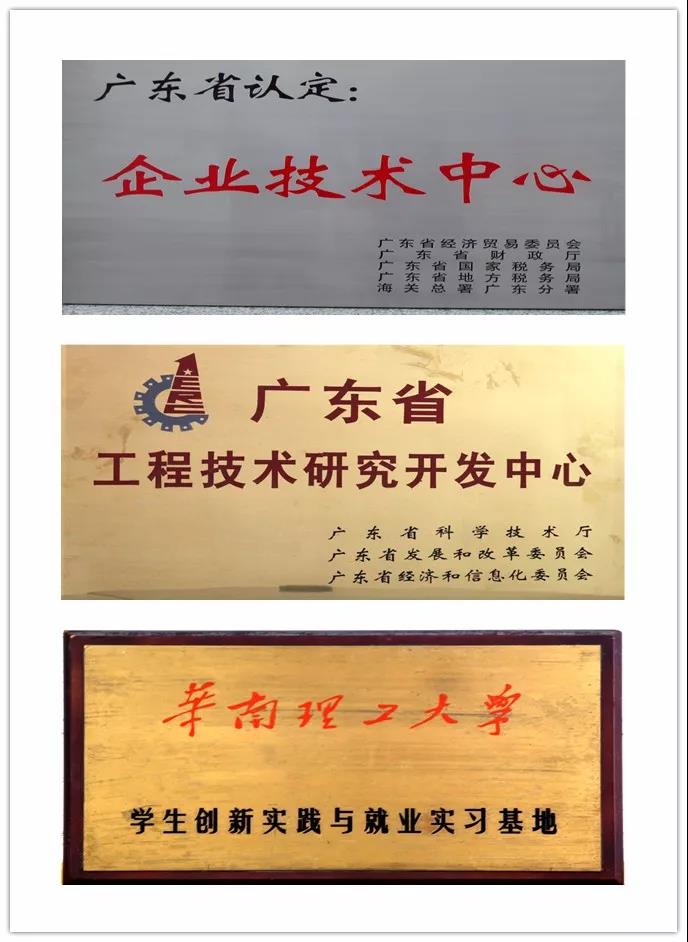 广东省认定：
企业技术中心
广东省经济贸易委员会
广东省财政厅
广东省国家税务局
广东省地方税务局
海关总署广东分署
ERC
广东省
工程技术研究开发中心
广东省科学技术厅
广东省发展和改革委员会
广东省经济和信息化委员会
华南理工大学
学生创新实践与就业实习基地